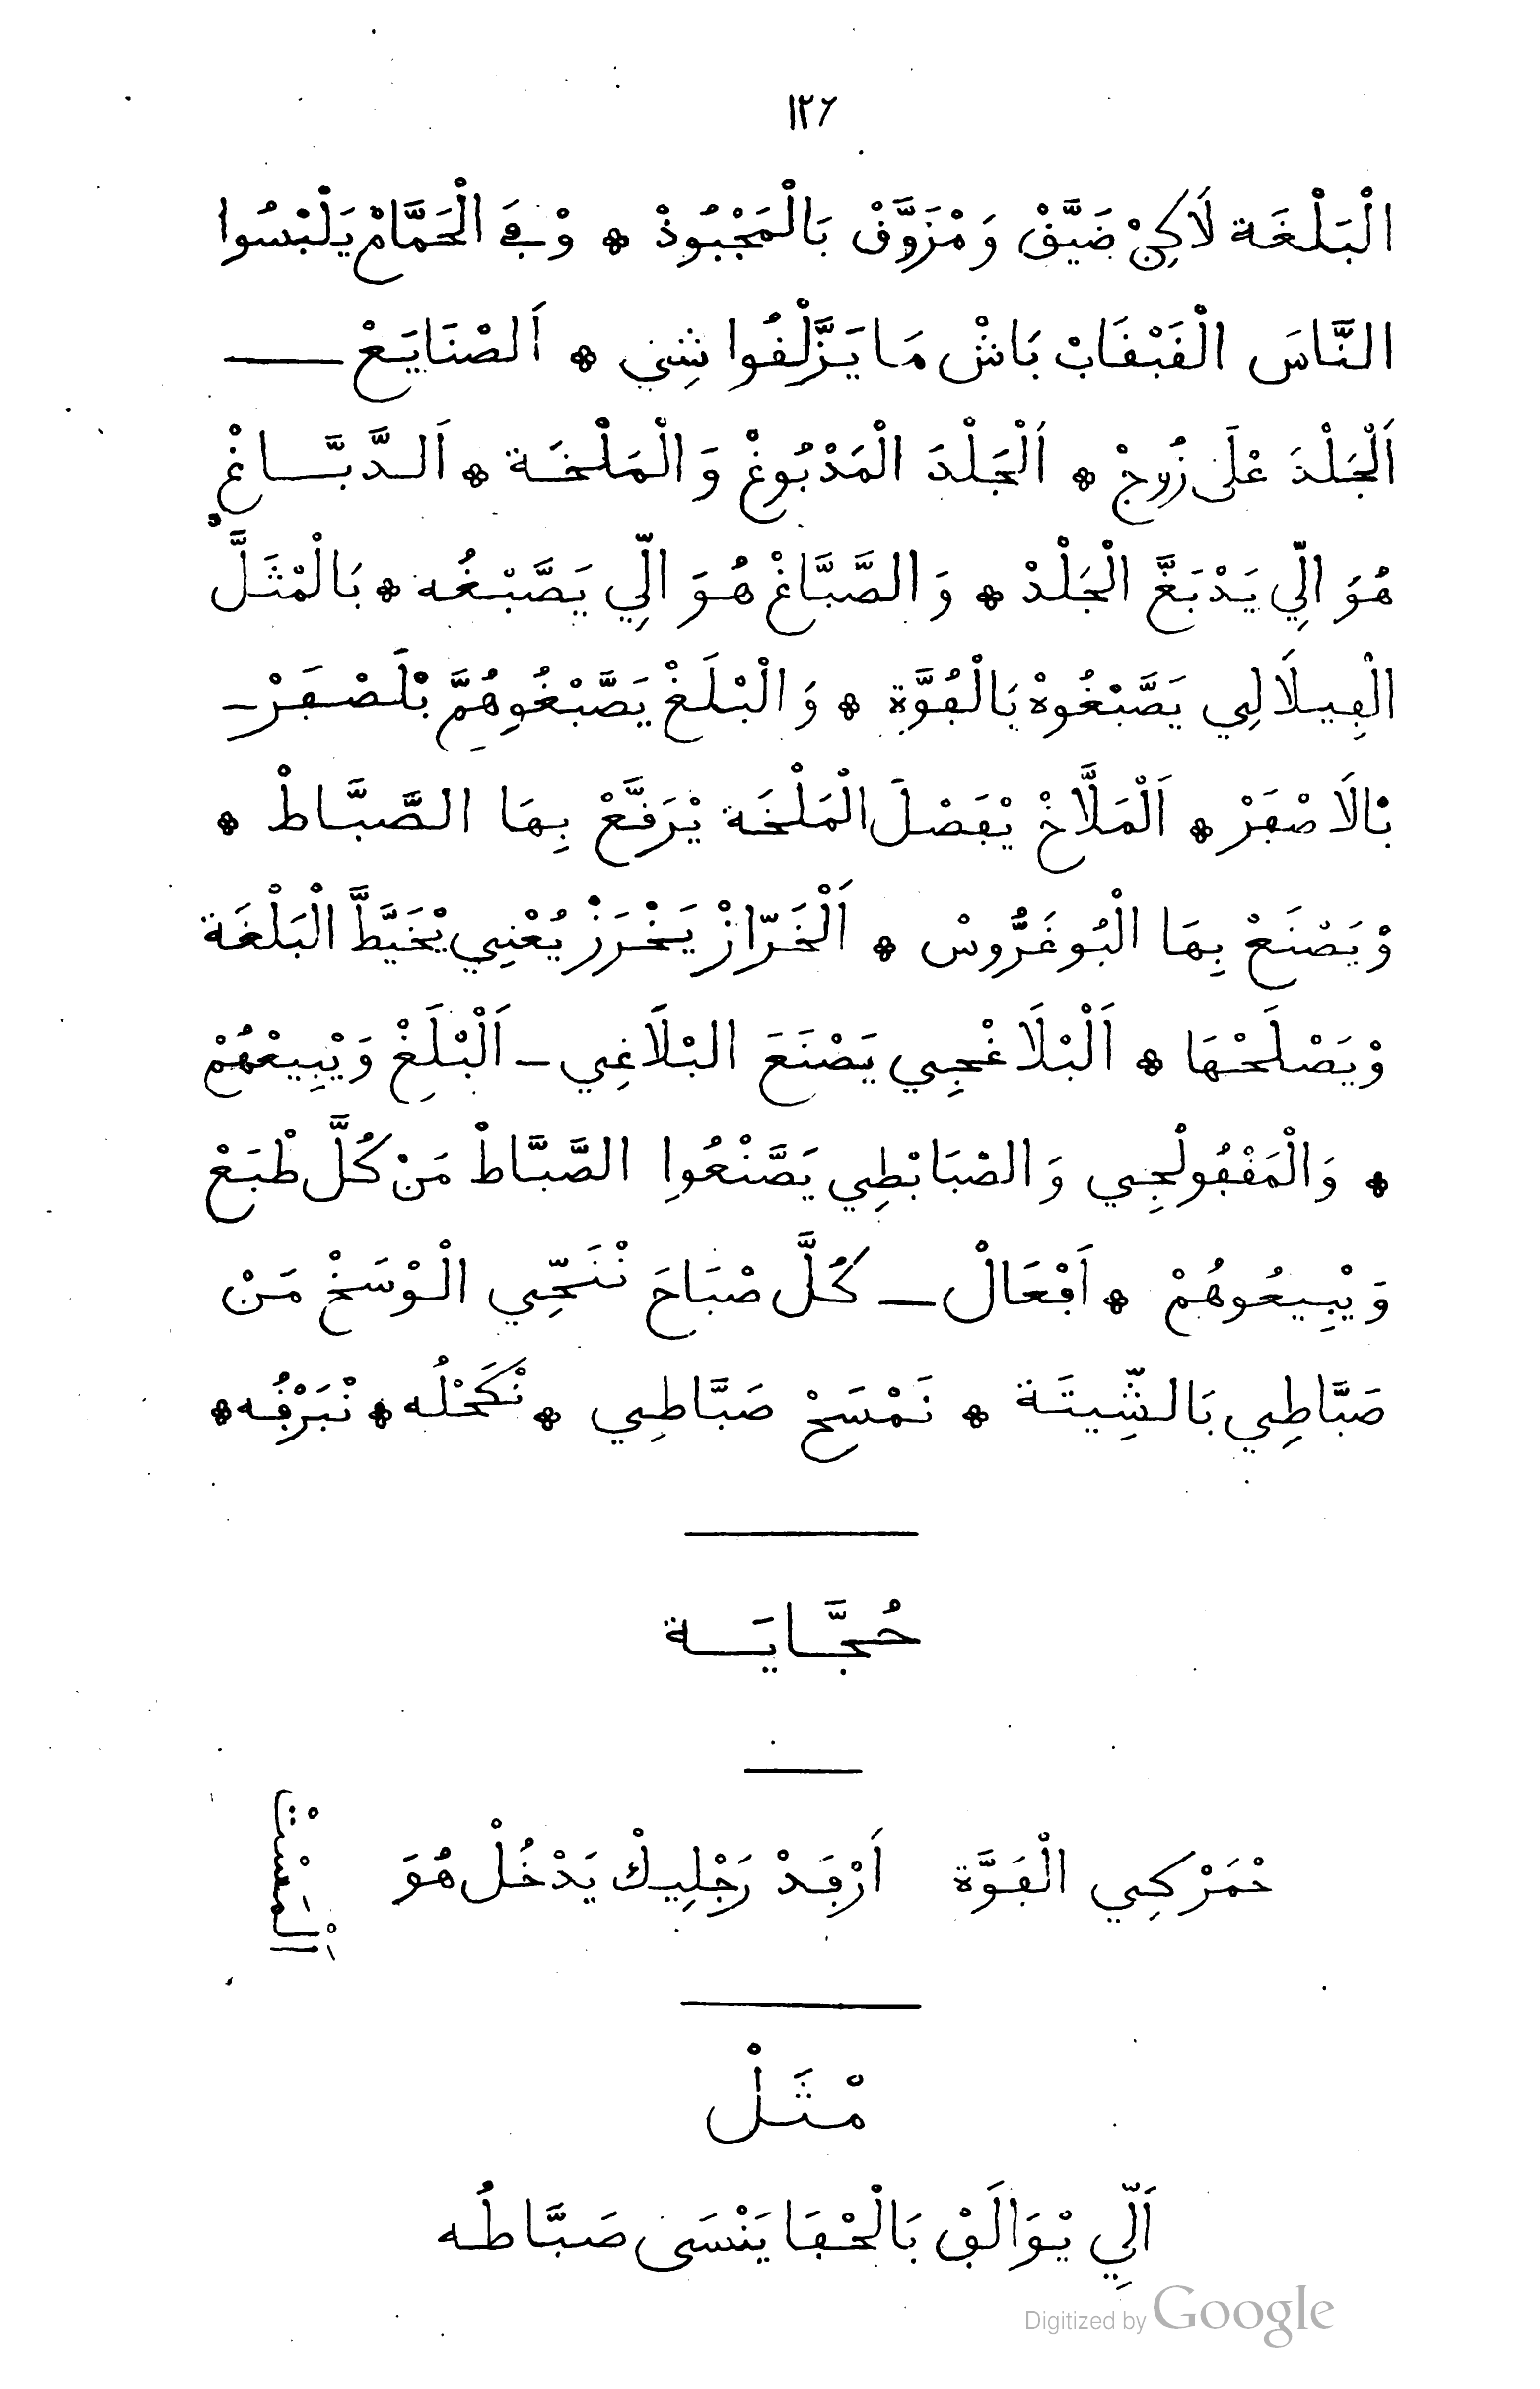 ١٢٦
الْبَلْغَة لَاكِنْ ضَيَّقْ وَمْزَوَّقْ بَالْمَجْبُودْ * وْفِي الْحَمَّامْ يَلْبْسُوا
النَّاسَ الْقَبْقَابْ بَاشْ مَا يَزَّلْقُوا شِي * اَلصْنَايَعْ —
اَلْجَلْدَ عْلَى زُوجْ * اَلْجَلْدَ الْمَدْبُوغْ وَالْمَلْخَة * اَلدَّبَّاغْ
هُوَ الِّي يَدْبَغَّ الْجَلْدْ * وَالصَّبَّاغْ هُوَ الِّي يَصَّبْغُه * بَالْمْثَلَّ
الْفِيلَالِي يَصَّبْغُوهْ بَالْفُوَّة * وَالْبْلَغْ يَصَّبْغُوهُمَّ بْلَصْفَرْ —
بْالَاصْفَرْ * اَلْمَلَّاخْ يْفَصْلَ الْمَلْخَة يْرَقَّعْ بِهَا الصَّبَّاطْ *
وْيَصْنَعْ بِهَا الْبُوغَرُّوسْ * اَلْخَرَّازْ يَخْرَزْ يُعْنِي يْخَيَّطَّ الْبَلْغَة
وْيَصْلَحْهَا * اَلْبْلَاغْجِي يَصْنَعَ الْبْلَاغِي — اَلْبْلَغْ وَيْبِيعْهُمْ
* وَالْمَقْفُولْجِي وَالصْبَابْطِي يَصَّنْعُوا الصَّبَّاطْ مَنْ كُلَّ طْبَعْ
وَيْبِيعُوهُمْ * اَفْعَالْ — كُلَّ صْبَاحَ نْنَحِّي الْوْسَخْ مَنْ
صَبَّاطِي بَالشِّيتَة * نَمْسَحْ صَبَّاطِي * نْكَحْلُه * نْبَرْقُه *
حُجَّايَة
حْمَرْ كِي الْفَوَّة اَرْفَدْ رَجْلِيكْ يَدْخُلْ هُوَ
اَلْمَسْتْ
مْثَلْ
اَلِّي يْوَالَفْ بَالْحْفَا يَنْسَى صَبَّاطُه
Digitized by Google